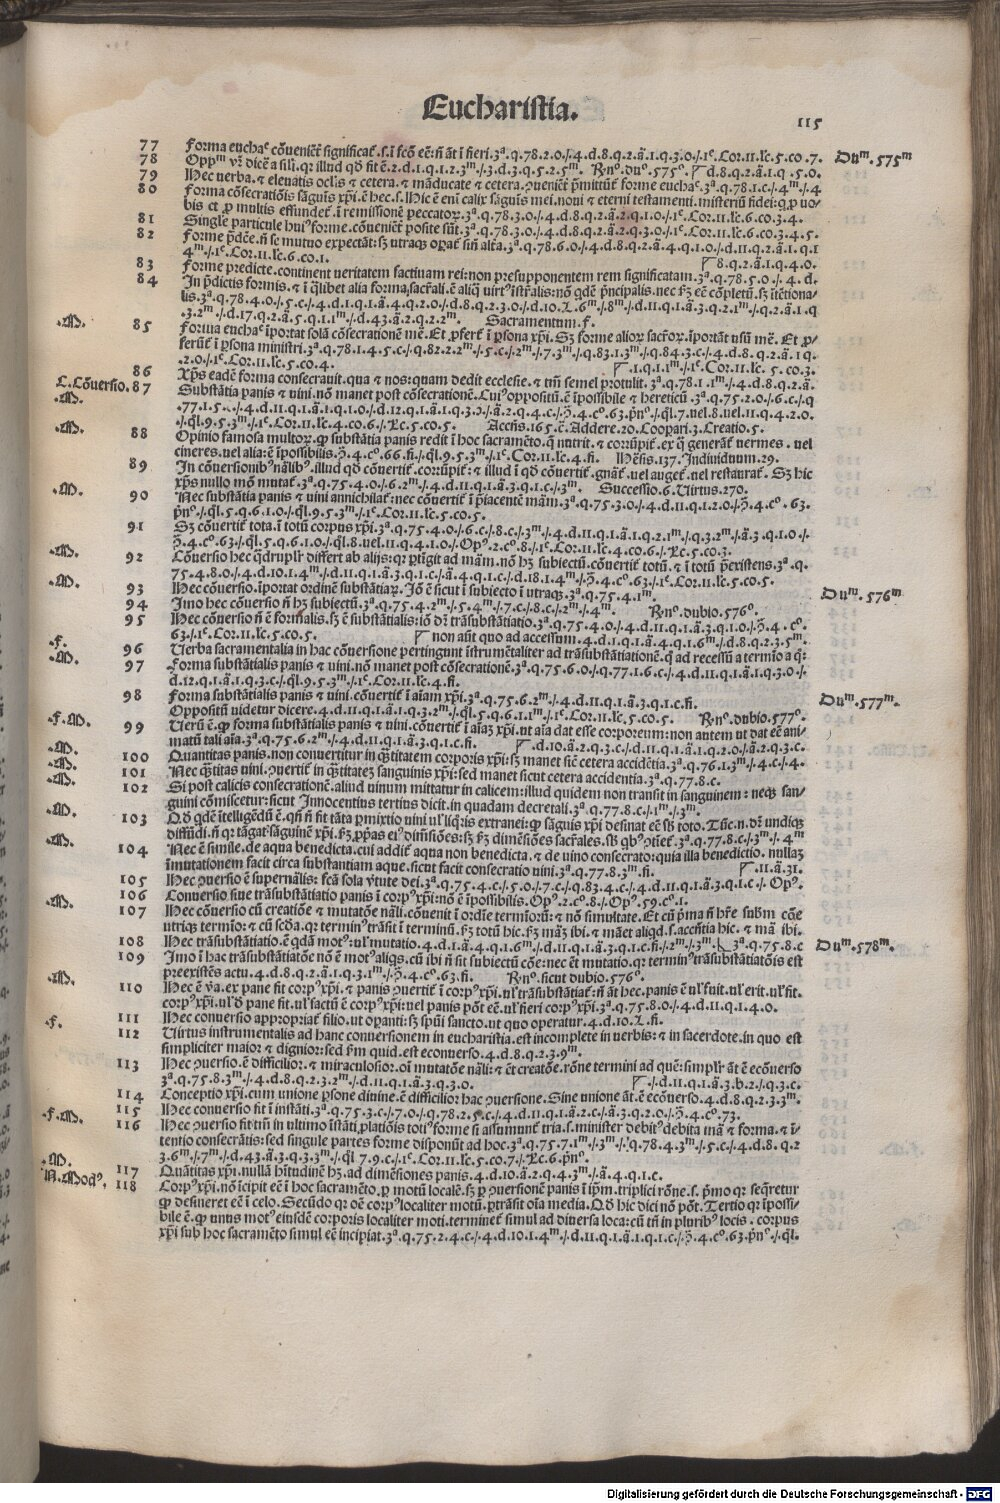 Eucharistia.
115
77 Forma euchaᵉ cōueniēt significat̄.s.ī fc̄o eē: n̄ āt ī fieri.3ª.q.78.2.o./.4.d.8.q.2.ā.1.q.3.o./.1ᶜ.Cor.11.lc̄.5.co.7. Duᵐ.575ᵐ
78 Oppᵐ vr̄ dicē a sili.qr illud qd̄ fit ē.2.d.1.q.1.2.3ᵐ./.3.d.3.q.5.2.5ᵐ. R̄nᵒ.duᵒ.575ᵒ. d.8.q.2.ā.1.q.5.o.
79 Hec uerba.et eleuatis oclis et cetera.et māducate et cetera.ꝯueniēt p̄mittūt̄ forme euchaᵉ.3ª.q.78.1.c./.4ᵐ./.4
80 Forma cōsecratiōis sāguīs xp̄i.ē hec.s.Hic ē enī calix sāguīs mei.noui et eterni testamenti.misteriū fidei:q̄ ꝓ uo-
bis et ꝓ multis effundet̄ ī remissionē peccatoꝝ.3ª.q.78.3.o./.4.d.8.q.2.ā.2.q.1.o./.1ᶜ.Cor.11.lc̄.6.co.3.4.
81 Singłe particule huiꝰ forme.cōueniēt posite sūt.3ª.q.78.3.o./.4.d.8.q.2.ā.2.q.3.o./.1ᶜ.Cor.11.lc̄.6.co.3.4.5.
82 Forme p̄dc̄e.n̄ se mutuo expectāt:sꝫ utraqꝫ oꝑat̄ sin̄ altā.3ª.q.78.6.o./.4.d.8.q.2.ā.4.q.1.o./.d.11.q.2.ā.1.q.1
4ᵐ./.1ᶜ.Cor.11.lc̄.6.co.1. 8.q.2.ā.1.q.4.o.
83 Forme predicte.continent ueritatem factiuam rei:non presupponentem rem significatam.3ª.q.78.5.o./.4.d.
84 In p̄dictis formis.et ī q̄libet alia forma,sacr̄ali.ē aliq̄ uirtꝰ īstr̄alis:nō q̄dē p̄ncipalis.nec hꝫ eē cōpletū.sꝫ ītētiona-
lis.3ª.q.78.4.o./.5.c./.4.d.1.q.1.ā.4.q.2.o./.d.8.q.2.3.o./.d.10.L.6ᵐ./.8ᵐ./.d.11.q.1.ā.3.q.2.1ᵐ./.q.2.ā.1.q
.3.2ᵐ./.d.17.q.2.ā.5.q.1.1ᵐ./.d.43.ā.2.q.2.2ᵐ. Sacramentum.f.
.M. 85 Forma euchaᵉ īportat solā cōsecrationē mē.Et ꝓfert̄ ī ꝑsona xp̄i.Sꝫ forme alioꝝ sacr̄oꝝ.īportāt usū mē.Et ꝓ-
ferūt̄ ī ꝑsona ministri.3ª.q.78.1.4.5.c./.q.82.2.2ᵐ./.5.c./.2ᵐ./.7.3ᵐ./.q.83.1.3ᵐ./.q.84.3.c./.4.d.8.q.2.ā.1q.
.2.o./.1ᶜ.Cor.11.lc̄.5.co.4. .1.q.1.1ᵐ./.1ᶜ.Cor.11.lc̄.5.co.3.
86 Xp̄s eadē forma consecrauit.qua et nos:quam dedit ecclesie.et tm̄ semel protulit.3ª.q.78.1.1ᵐ./.4.d.8.q.2.ā.
C.Cōuersio. 87 Substātia panis et uini.nō manet post cōsecrationē.Cuiꝰ oppositū.ē īpossibile et hereticū.3ª.q.75.2.o./.6.c./.q
.M. .77.1.5.c./.4.d.11.q.1.ā.1.q.1.o./.d.12.q.1.ā.1.q.3.o./.ā.2.q.4.c./.h̄.4.cᵒ.63.p̄nᵒ./.q̄l.7.uel.8.uel.11.q.4.2.o.
./.q̄l.9.5.3ᵐ./.1ᶜ.Cor.11.lc̄.4.co.6./.Xc.5.co.5. Accn̄s.165.c̄.Addere.20.Coopari.3.Creatio.5.
.M. 88 Opinio famosa multoꝝ.ꝙ substātia panis redit ī hoc sacramēto.q̄ nutrit.et corrūpit̄.ex q̄ generāt̄ uermes.uel
cineres.uel alia:ē īpossibilis.h̄.4.cᵒ.66.fi./.q̄l.9.5.3ᵐ./.1ᶜ.Cor.11.lc̄.4.fi. Mēsis.137.Indiuiduum.29.
89 In cōuersionibꝰ nālibꝰ.illud qd̄ cōuertit̄.corrūpit̄:et illud ī qd̄ cōuertit̄.gnāt̄.uel auget̄.uel restaurat̄.Sꝫ hic
xp̄s nullo mō mutat̄.3ª.q.75.4.o./.6.2ᵐ./.4.d.11.q.1.ā.3.q.1.c./.3ᵐ. Successio.6.Uirtus.270.
.M. 90 Nec substātia panis et uini annichilat̄:nec cōuertit̄ ī p̄iacentē mām.3ª.q.75.3.o./.4.d.11.q.1.2.o./.h̄.4.cᵒ.63.
p̄nᵒ./.q̄l.5.q.6.1.o./.q̄l.9.5.3ᵐ./.1ᶜ.Cor.11.lc̄.5.co.5.
91 Sꝫ cōuertit̄ tota.ī totū corpus xp̄i.3ª.q.75.4.o./.6.c./.8.c./.3ᵐ./.4.d.11.q.1.ā.1.q.2.1ᵐ./.q.3.2ᵐ./.ā.3.q.1.o./.
h̄.4.cᵒ.63./.q̄l.5.q.6.1.o./.q̄l.8.uel.11.q.4.1.o./.Opꝰ.2.cᵒ.8./.1ᶜ.Cor.11.lc̄.4.co.6./.Xc.5.co.3.
.M. 92 Cōuersio hec q̄druplr̄ differt ab alijs:qr ꝑtīgit ad mām.nō hꝫ subiectū.cōuertit̄ totū.et ī totū p̄existens.3ª.q.
75.4.8.o./.4.d.10.1.4ᵐ./.d.11.q.1.ā.3.q.1.c./.ā.4.q.1.c./.d.18.1.4ᵐ./.h̄.4.cᵒ.63./.1ᶜ.Cor.11.lc̄.5.co.5.
.M. 93 Hec cōuersio.īportat ordinē substātiaꝝ.Iō ē sicut ī subiecto ī utraqꝫ.3ª.q.75.4.1ᵐ. Duᵐ.576ᵐ
94 Imo hec cōuersio n̄ hꝫ subiectū.3ª.q.75.4.2ᵐ./.5.4ᵐ./.7.c./.8.c./.2ᵐ./.4ᵐ. R̄nᵒ.dubio.576ᵒ.
95 Hec cōuersio n̄ ē formalis.sꝫ ē substātialis:iō dr̄ trāsubstātiatio.3ª.q.75.4.o./.4.d.11.q.1.ā.3.q.1.o./.h̄.4.cᵒ.
63./.1ᶜ.Cor.11.lc̄.5.co.5. non aūt quo ad accessum.4.d.1.q.1.ā.4.q.1.6ᵐ./.d.8.q.2.3.5ᵐ.
.F. 96 Uerba sacramentalia in hac cōuersione pertingunt īstrumētaliter ad trāsubstātiationē.q̄ ad recessū a termīo a q̄:
.M. 97 Forma substātialis panis et uini.nō manet post cōsecrationē.3ª.q.75.6.o./.q.77.1.6.c./.4.d.11.q.1.ā.1.q.3.o./.
d.12.q.1.ā.1.q.3.c./.q̄l.9.5.3ᵐ./.1ᶜ.Cor.11.lc̄.4.fi.
98 Forma substātialis panis et uini.cōuertit̄ ī aīam xp̄i.3ª.q.75.6.2ᵐ./.4.d.11.q.1.ā.3.q.1.c.fi. Duᵐ.577ᵐ.
Oppositū uidetur dicere.4.d.11.q.1.ā.1.q.3.2ᵐ./.q̄l.5.q.6.1.1ᵐ./.1ᶜ.Cor.11.lc̄.5.co.5. R̄nᵒ.dubio.577ᵒ.
.F.M. 99 Uerū ē.ꝙ forma substātialis panis et uini.cōuertit̄ ī aīaꝫ xp̄i.ut aīa dat esse corporeum:non autem ut dat eē ani-
matū tali aīa.3ª.q.75.6.2ᵐ./.4.d.11.q.1.ā.3.q.1.c.fi. d.10.ā.2.q.3.c./.d.11.q.1.ā.1.q.2.o./.ā.2.q.3.c.
.M. 100 Quantitas panis.non conuertitur in q̄titatem corporis xp̄i:sꝫ manet sic̄ cetera accidētia.3ª.q.76.1.3ᵐ./.4.c./.4.
.M. 101 Nec q̄titas uini.ꝯuertit̄ in q̄titateꝫ sanguinis xp̄i:sed manet sicut cetera accidentia.3ª.q.77.8.c.
.M. 102 Si post calicis consecrationē.aliud uinum mittatur in calicem:illud quidem non transit in sanguinem:neqꝫ san-
guini cōmiscetur:sicut Innocentius tertius dicit.in quadam decretali.3ª.q.77.8.c./.1ᵐ./.3ᵐ.
.M. 103 Qd̄ q̄dē ītelligēdū ē.qn̄ n̄ fit tāta ꝑmixtio uini ul̄ liq̄ris extranei:ꝙ sāguis xp̄i desinat eē sb̄ toto.Tūc.n.dr̄ undiqꝫ
diffūdi.n̄ qr tāgat̄ sāguinē xp̄i.ẜꝫ ꝓpͥas eiꝰ dim̄siōes:sꝫ ẜꝫ dimēsiōes sacr̄ales.sb̄ qbꝰ ꝯtiet̄.3ª.q.77.8.c./.3ᵐ./.4ᵐ
.M. 104 Nec ē simile.de aqua benedicta.cui addit̄ aqua non benedicta.et de uino consecrato:quia illa benedictio.nullaꝫ
īmutationem facit circa substantiam aque.sicut facit consecratio uini.3ª.q.77.8.3ᵐ.fi. .11.ā.31.
105 Hec ꝯuersio ē supernālis:fc̄ā sola v̄tute dei.3ª.q.75.4.c./.5.o./.7.c./.q.83.4.c./.4.d.11.q.1.ā.3.q.1.c./.Opꝰ.
.M. 106 Conuersio siue trāsubstātiatio panis ī corpꝰ xp̄i:nō ē īpossibilis.Opꝰ.2.cᵒ.8./.Opꝰ.59.cᵒ.1.
107 Hec cōuersio cū creatiōe et mutatōe nāli.cōuenit ī ordīe termīorū:et nō simultate.Et cū p̄ma n̄ hr̄e subm̄ cōe
utriqꝫ termīo:et cū scd̄a.qr terminꝰ trāsit ī terminū.ẜꝫ totū hic.ẜꝫ māꝫ ibi.et māet aliqd̄.s.accn̄tia hic.et mā ibi.
108 Hec trāsubstātiatio.ē q̄dā motꝰ:ul̄ mutatio.4.d.1.ā.4.q.1.6ᵐ./.d.11.q.1.ā.3.q.1.c.fi./.2ᵐ./.3ᵐ. 3ª.q.75.8.c Duᵐ.578ᵐ.
109 Imo ī hac trāsubstātiatōe nō ē motꝰ aliqs.cū ibi n̄ sit subiectū cōe:nec ēt mutatio.qr terminꝰ trāsubstātiatōis est
preexistēs actu.4.d.8.q.2.ā.1.q.3.1ᵐ./.h̄.4.cᵒ.63.fi. R̄nᵒ.sicut dubio.576ᵒ.
.M. 110 Hec ē v̄a.ex pane fit corpꝰ xp̄i.et panis ꝯuertit̄ ī corpꝰ xp̄i.ul̄ trāsubstātiat̄:n̄ āt hec.panis ē ul̄ fuit.ul̄ erit.ul̄ fit.
corpꝰ xp̄i.ul̄ d̄ pane fit.ul̄ factū ē corpꝰ xp̄i:uel panis pōt eē.ul̄ fieri corpꝰ xp̄i.3ª.q.75.8.o./.4.d.11.q.1.4.o.
.F. 111 Hec conuersio appropriat̄ filio.ut oꝑanti:sꝫ spūi sancto.ut quo operatur.4.d.10.L.fi.
112 Uirtus instrumentalis ad hanc conuersionem in eucharistia.est incomplete in uerbis:et in sacerdote.in quo est
simpliciter maior et dignior:sed ẜm quid.est econuerso.4.d.8.q.2.3.9ᵐ.
113 Hec ꝯuersio.ē difficilior.et miraculosior:oī mutatōe nāli:et ēt creatōe.rōne termini ad quē:simplr̄ āt ē ecōuerso
3ª.q.75.8.3ᵐ./.4.d.8.q.2.3.2ᵐ./.d.11.q.1.ā.3.q.3.o. ./.d.11.q.1.ā.3.b.2./.q.3.c.
114 Conceptio xp̄i.cum unione ꝑsone diuine.ē difficilior hac ꝯuersione.Sine unione āt.ē ecōuerso.4.d.8.q.2.3.3ᵐ.
.F.M. 115 Hec conuersio fit ī īstāti.3ª.q.75.3.c./.7.o./.q.78.2.5.c./.4.d.11.q.1.ā.2.c./.ā.3.q.2.o./.h̄.4.cᵒ.73.
116 Hec ꝯuersio fit tm̄ in ultimo īstāti,ꝓlatiōis totiꝰ forme si assumunt̄ tria.s.minister debitꝰ debita mā et forma.et ī-
tentio consecrātis:sed singule partes forme disponūt ad hoc.3ª.q.75.7.1ᵐ./.3ᵐ./.q.78.4.3ᵐ./.5.c./.4.d.8.q.2
3.6ᵐ./.7ᵐ./.d.43.ā.3.q.3.3ᵐ./.q̄l.7.9.c./.1ᶜ.Cor.11.lc̄.5.co.7./.Xc.6.p̄nᵒ.
.M. 117 Quātitas xp̄i.nullā hītudinē hꝫ.ad dimēsiones panis.4.d.10.ā.2.q.4.3ᵐ./.ā.4.q.1.c.
N.Modꝰ. 118 Corpꝰ xp̄i.nō īcipit eē ī hoc sacramēto.ꝑ motū localē.sꝫ ꝑ ꝯuersionē panis ī ip̄m.triplici rōne.s.p̄mo qr seq̄retur
ꝙ desineret eē ī celo.Secūdo qr oē corpꝰ localiter motū.ꝑtrāsit oīa media.Qd̄ hic dici nō pōt.Tertio qr īpossi-
bile ē.ꝙ unus motꝰ eiusdē corporis localiter moti.terminet̄ simul ad diuersa loca:cū tn̄ in pluribꝰ locis.corpus
xp̄i sub hoc sacramēto simul eē incipiat.3ª.q.75.2.4.c./.4.d.10.1.4ᵐ./.d.11.q.1.ā.1.q.1.c./.h̄.4.cᵒ.63.p̄nᵒ./.q̄l.
Digitalisierung gefördert durch die Deutsche Forschungsgemeinschaft - DFG